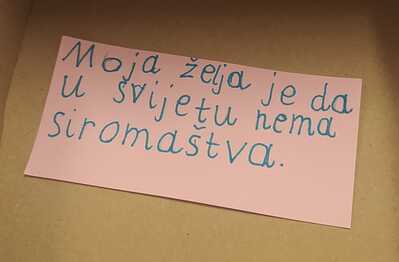 Moja želja je da
u švijetu nema
siromaštva.